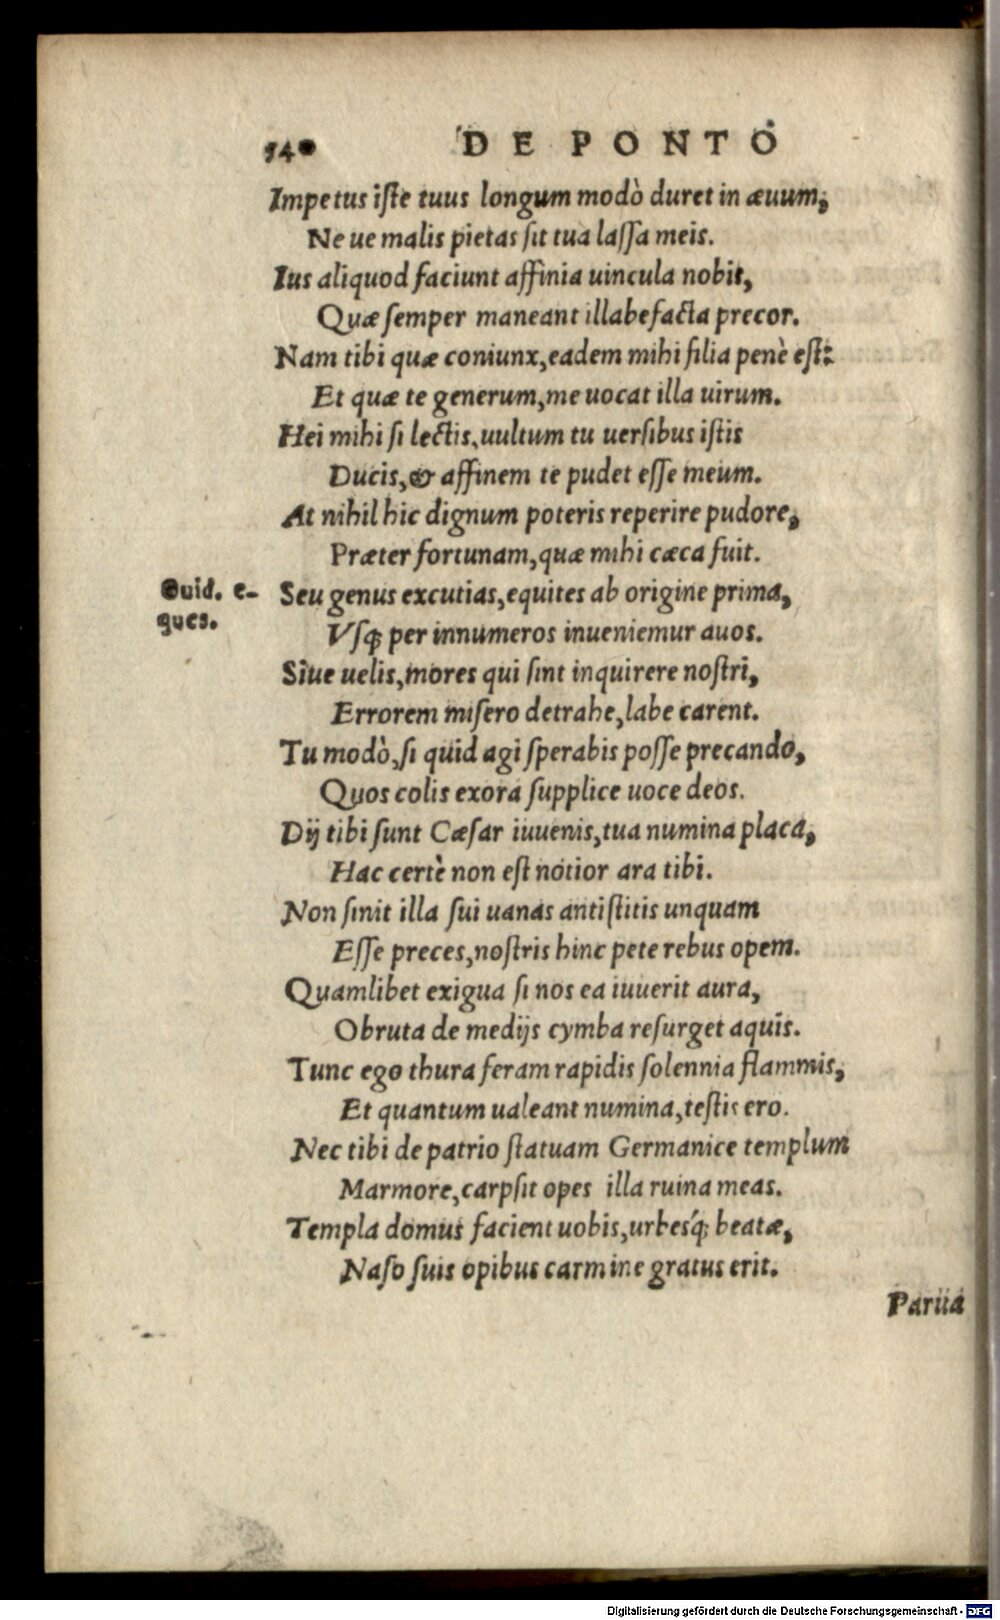 DE PONTO
Impetus iſte tuus longum modò duret in æuum,
Ne ue malis pietas ſit tua laſſa meis.
Ius aliquod faciunt affinia uincula nobis,
Quæ ſemper maneant illabefacta precor.
Nam tibi quæ coniunx, eadem mihi filia penè eſt:
Et quæ te generum, me uocat illa uirum.
Hei mihi ſi lectis, uultum tu uerſibus iſtis
Ducis, & affinem te pudet eſſe meum.
At nihil hic dignum poteris reperire pudore,
Præter fortunam, quæ mihi cæca fuit.
Ouid. e-
ques.
Seu genus excutias, equites ab origine prima,
Vſq; per innumeros inueniemur auos.
Siue uelis, mores qui ſint inquirere noſtri,
Errorem miſero detrahe, labe carent.
Tu modò, ſi quid agi ſperabis poſſe precando,
Quos colis exora ſupplice uoce deos.
Dij tibi ſunt Cæſar iuuenis, tua numina placa,
Hac certè non eſt notior ara tibi.
Non ſinit illa ſui uanas antiſtitis unquam
Eſſe preces, noſtris hinc pete rebus opem.
Quamlibet exigua ſi nos ea iuuerit aura,
Obruta de medijs cymba reſurget aquis.
Tunc ego thura feram rapidis ſolennia flammis,
Et quantum ualeant numina, teſtis ero.
Nec tibi de patrio ſtatuam Germanice templum
Marmore, carpſit opes illa ruina meas.
Templa domus facient uobis, urbesq́; beatæ,
Naſo ſuis opibus carmine gratus erit.
Parua
Digitalisierung gefördert durch die Deutsche Forschungsgemeinschaft - DFG